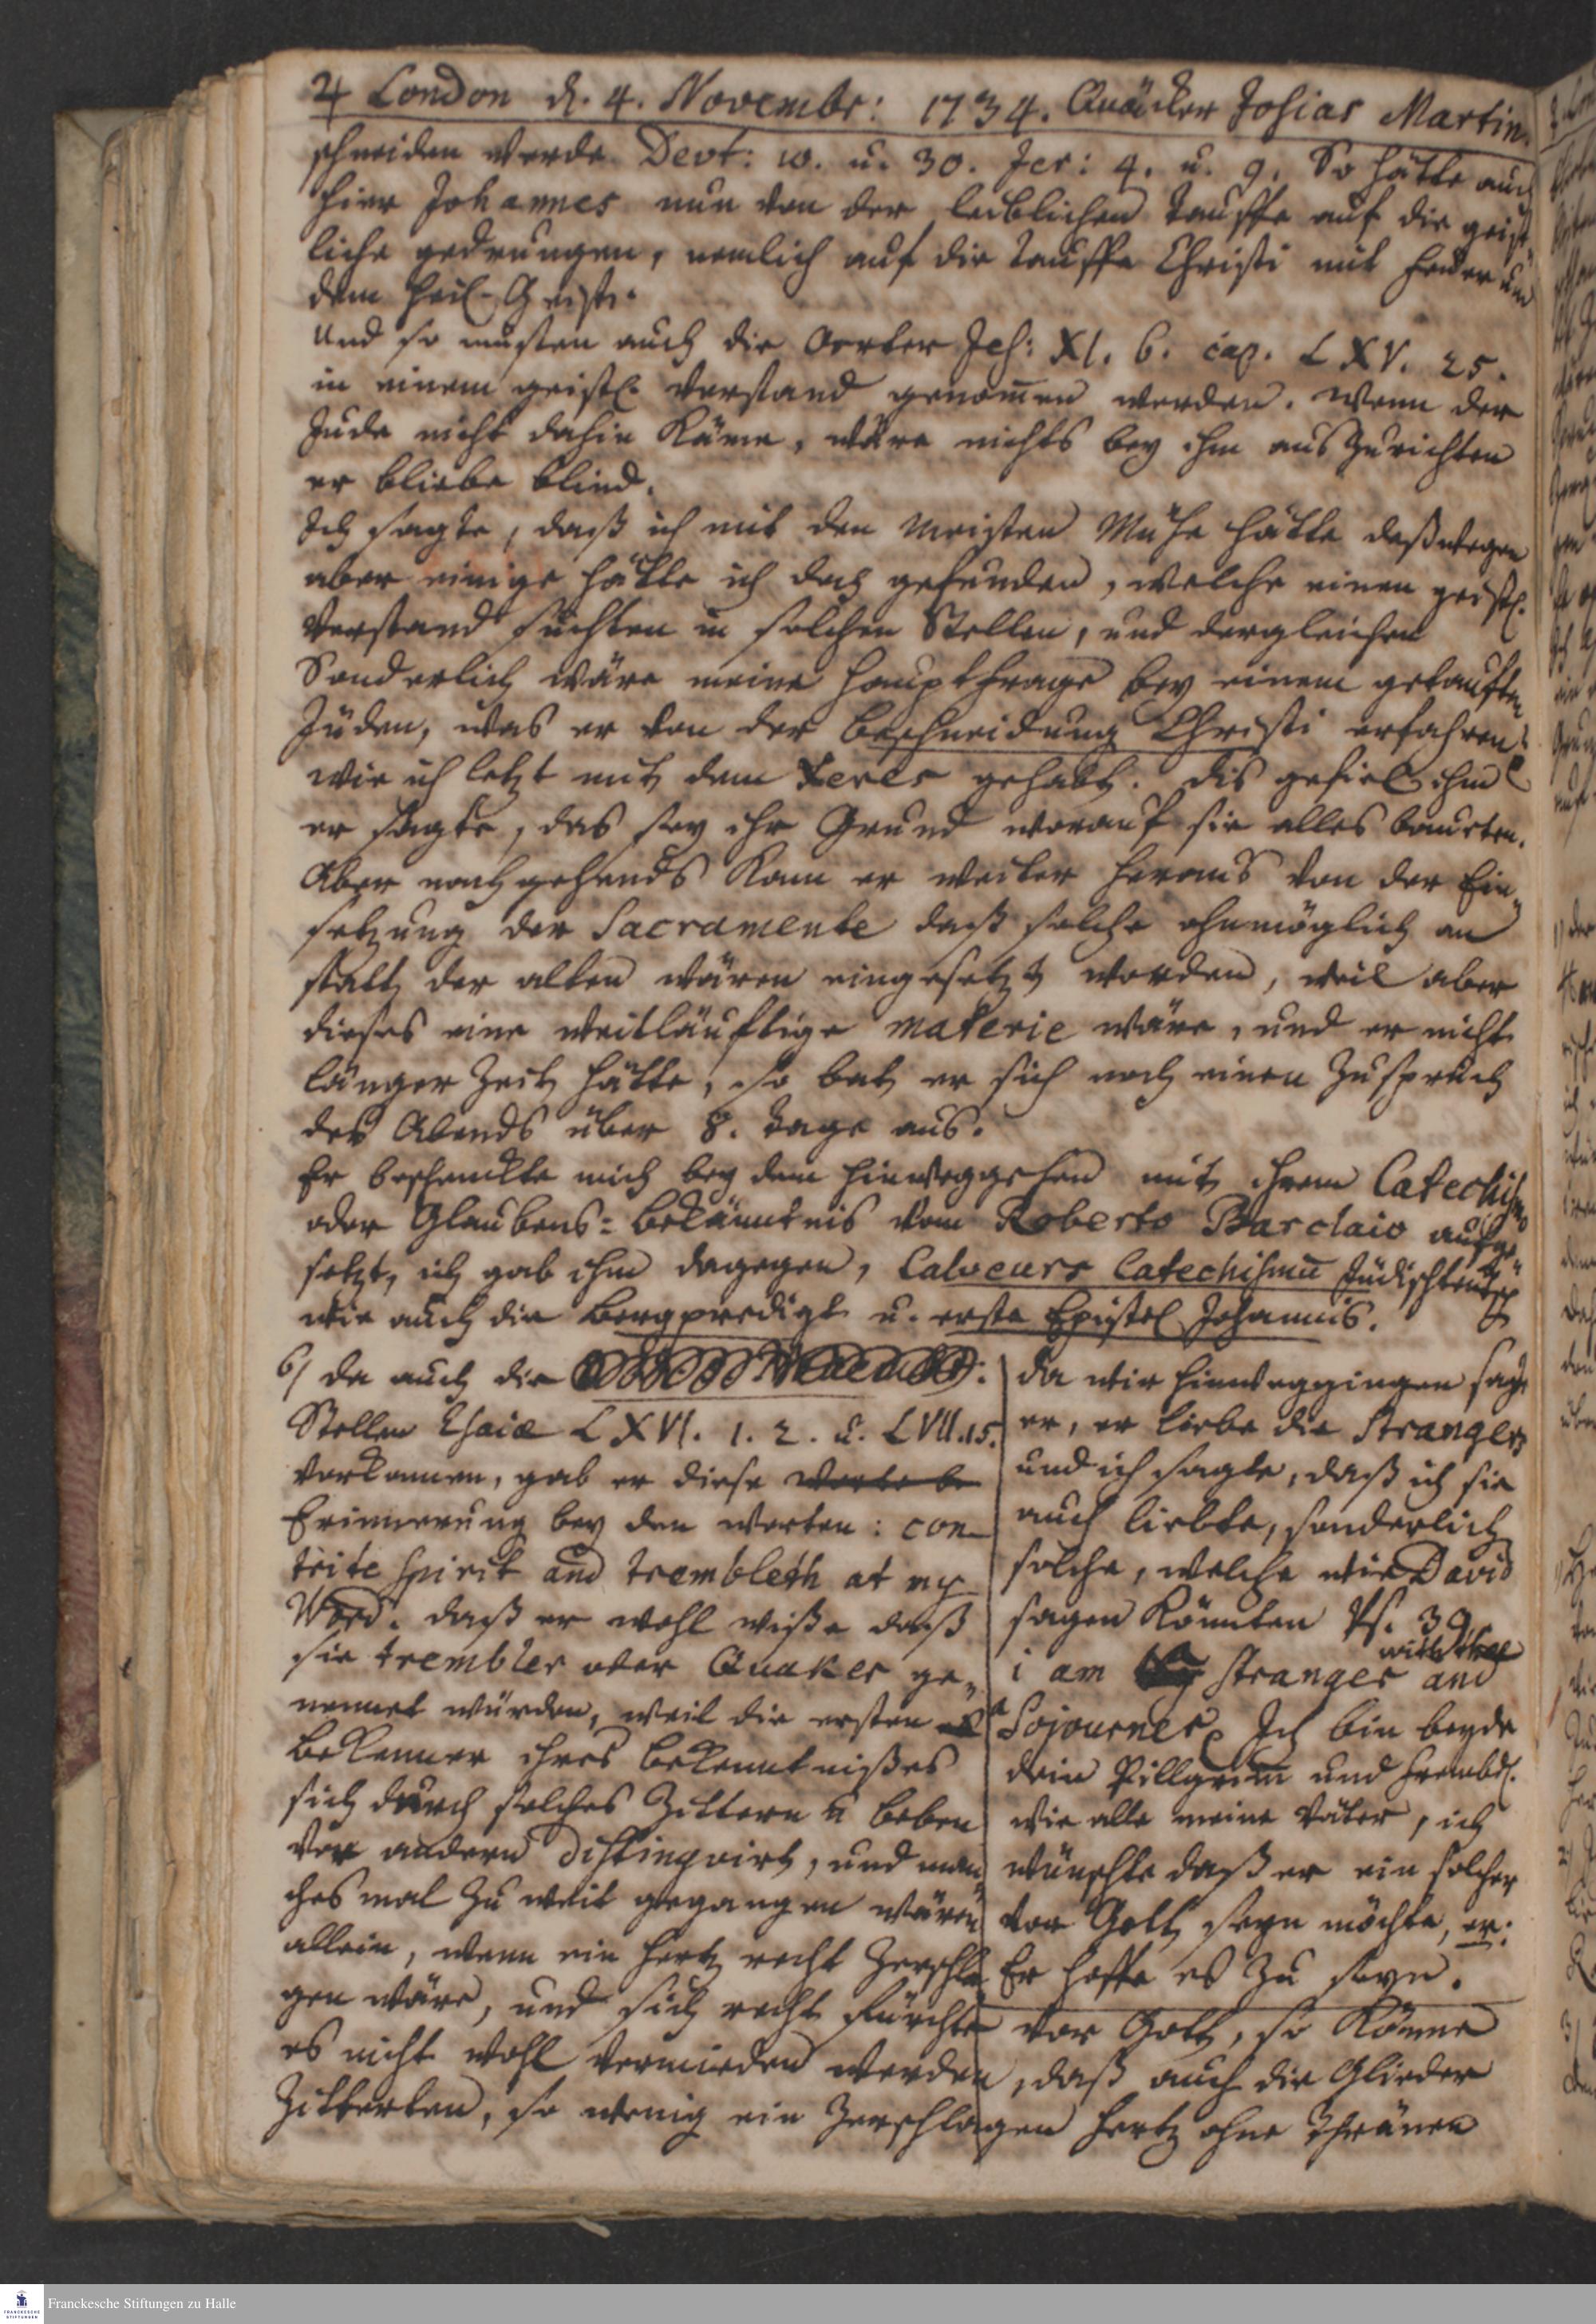 ♃ London d. 4. Novembr: 1734. Quäcker Josias Martin.
schneiden werde Devt: 10. u. 30. Jer: 4. u. 9. So hätte auch
hier Johannes nun von der leiblichen Tauffe auf die geist
liche gedrungen, nemlich auf die Tauffe Christi mit Feuer und
dem Heil. Geist.
Und so müsten auch die Oerter Jes: XI. 6. cap. LXV. 25.
in einem geistl. Verstand genom̄en werden. Wenn der
Jude nicht dahin käme, wäre nichts bey ihm auszurichten
er bliebe blind.
Ich sagte, daß ich mit den Meisten Mühe hätte deßwegen
aber einige hätte ich doch gefunden, welche einen geistl.
Verstand suchten in solchen Stellen, und dergleichen
Sonderlich wäre meine Hauptfrage bey einem getauften
Juden, was er von der Beschneidung Christi erfahren?
wie ich letzt mit dem Xeres gehabt. Dis gefiel ihm
er sagte, das sey ihr Grund worauf sie alles baueten.
Aber nachgehends kam er weiter heraus von der Ein„
setzung der Sacramente daß solche ohnmöglich an
statt der alten wären eingesetzt worden, weil aber
dieses eine weitläuftige materie wäre, und er nicht
länger Zeit hätte, so bat er sich noch einen Zuspruch
des Abends über 8. Tage aus.
Er beschenckte mich bey dem hinweggehen mit ihrem Catechismo
oder Glaubens-Bekänntnis vom Roberto Barclaio aufge„
setzt, ich gab ihm dagegen, Calvours Catechismū Jüdischteutsch
wie auch die Bergpredigt u. erste Epistel Johannis.
6/ da auch die
Stellen Esaiæ LXVI. 1. 2. u. LVII. 15.
vorkamen, gab er diese Worte be
Erinnerung bey den Worten: con
trite spirit and trembleth at my
Word. daß er wohl wiße daß
sie trembler oder Quaker ge„
nennet würden, weil die ersten
Bekenner ihres Bekenntnißes
sich durch solches Zittern u beben
vor andern distingvirt, und man„
ches mal zu weit gegangen wären
allein, wenn ein Hertz recht zerschla„
gen wäre, und sich recht fürchte vor Gott, so könne
es nicht wohl vermieden werden, daß auch die Glieder
Zitterten, so wenig ein zerschlagen Hertz ohne Thränen
da wir hinweggingen sagte
er, er liebe die Strangers
und ich sagte, daß ich sie
auch liebte, sonderlich
solche, welche wie David
sagen könnten Ps. 39.
with thee
i am stranger and
a Sojourner. Ich bin beyde
dein Pillgrim und Frembdl.
wie alle meine Väter, ich
wünschte daß er ein solcher
vor Gott seyn möchte, er:
Er hoffe es zu seyn.
Franckesche Stiftungen zu Halle